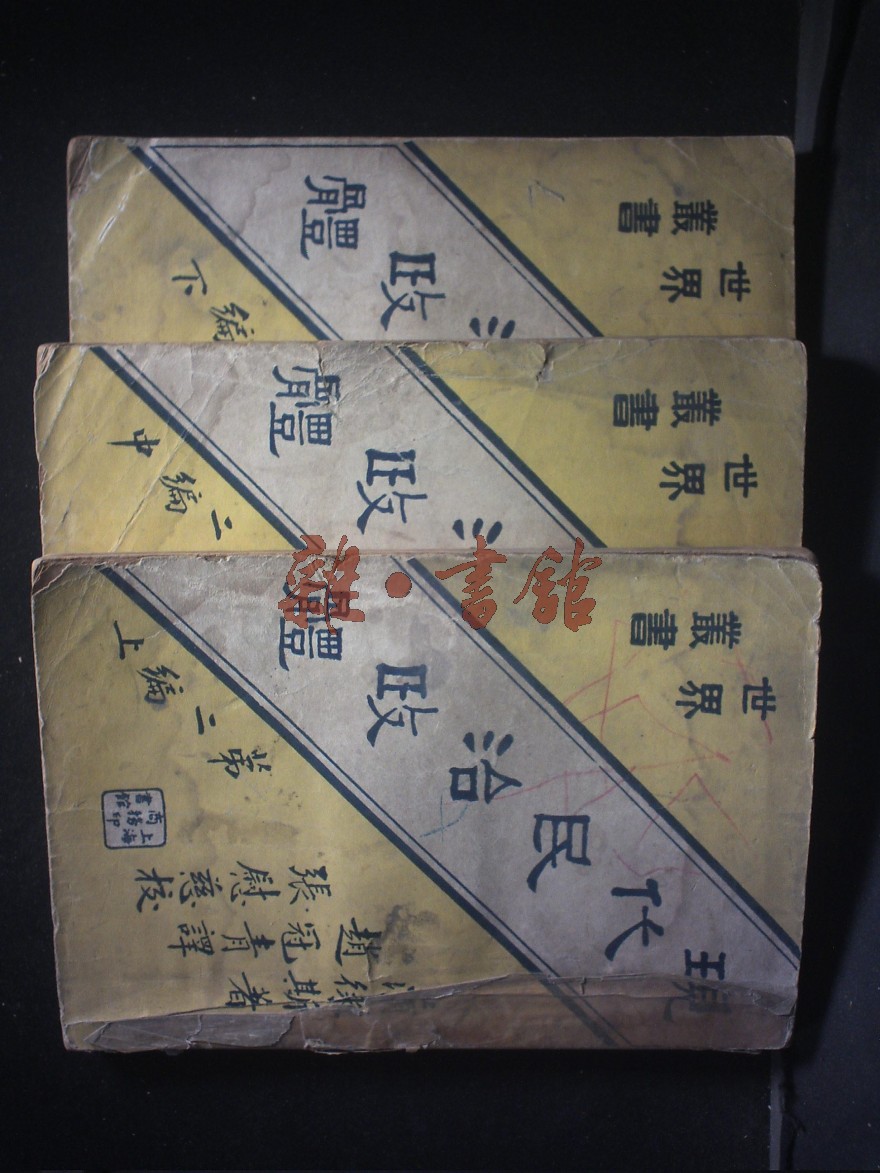 世界
叢書
政體
編下
世界
叢書
政體
二編中
世界
叢書
現代民治政體
第二編上
斯著
趙冠青譯
張慰慈校
上海
商務印
書館
雜·書館